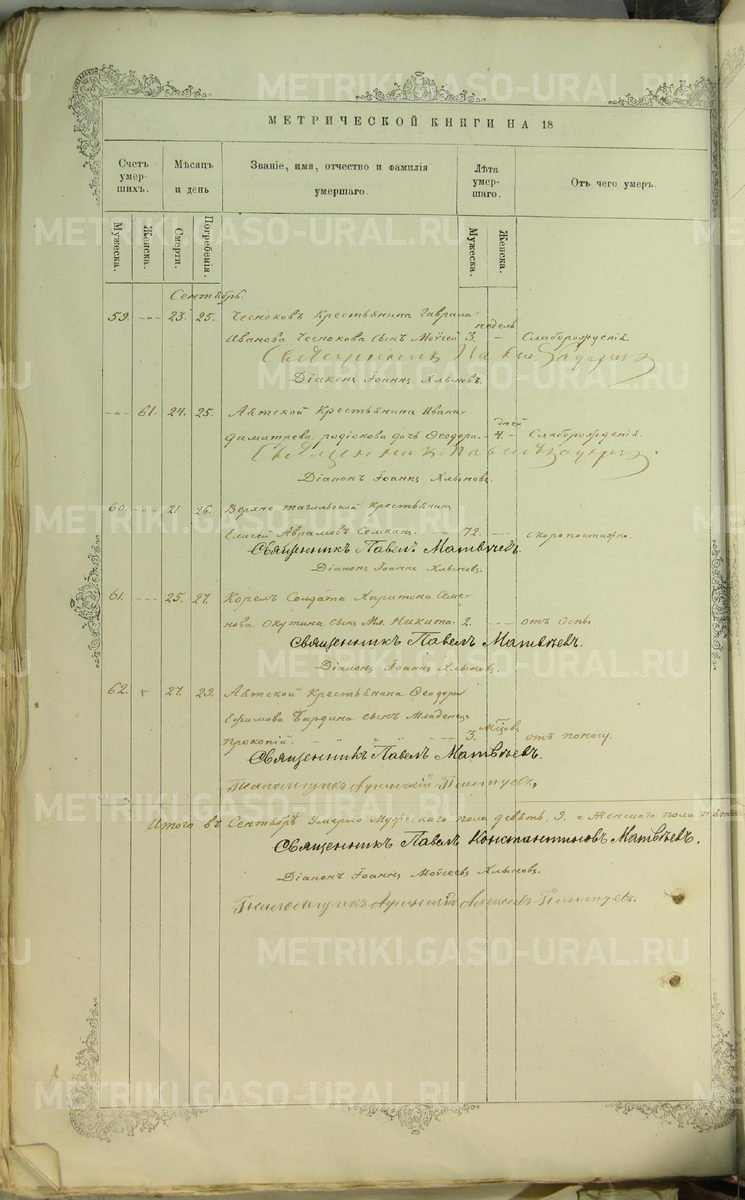 МЕТРИЧЕСКОЙ КНИГИ НА 18
Счетъ умер-шихъ.
Мѣсяцъ и день
Званіе, имя, отчество и фамилія умершаго.
Лѣта умер-шаго.
Отъ чего умеръ.
Мужеска.
Женска.
Смерти.
Погребенія.
Мужеска.
Женска.
Сентябрь.
59. -"- 23. 25. Чесноковъ Крестьянина Гаврила
недель
Иванова Чеснокова сынъ Моѵсей 3. - Слаборожденія.
Священникъ
Діаконъ Іоаннъ Хлыновъ.
-"- 61. 24. 25. Крестьянина Ивана
дней
Димитрева Родіонова дочь Ѳеодора. - 4. - Слаборожденія.
Священникъ
Діаконъ Іоаннъ Хлыновъ.
60. -"- 21. 26. Верхне тагильской Крестьянинъ
Елисей Аврамовъ Семкинъ. 72. -"- скоропостижно.
Священникъ Павелъ Матвѣевъ.
Діаконъ Іоаннъ Хлыновъ.
61. -"- 25. 27. Солдата Харитона Семе-
нова Окутина сынъ Мл. Никита 2. -"- отъ Оспы.
Священникъ Павелъ Матвѣевъ.
Діаконъ Іоаннъ Хлыновъ.
62. 27. 29. Крестьянина Ѳеодора
Ефимова сынъ Младенецъ
Мѣсяцовъ
Прокопій. 3. отъ поносу.
Священникъ Павелъ Матвѣевъ.
Итого въ Сентябрѣ Умерло Мужескаго пола девять, 9. а Женскаго пола
Священникъ Павелъ Константиновъ Матвѣевъ.
Діаконъ Іоаннъ Моѵсеевъ Хлыновъ.
METRIKI.GASO-URAL.RU